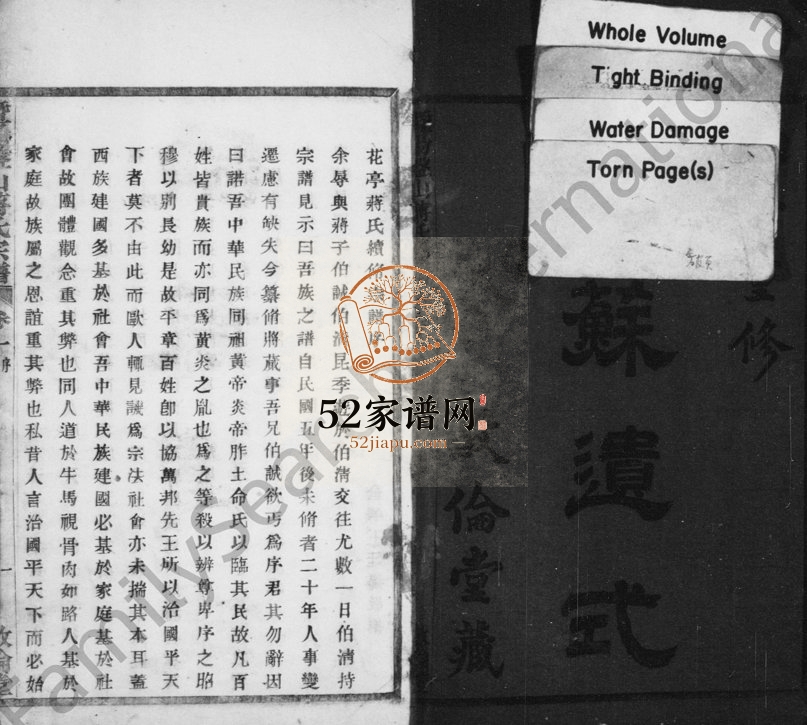 Whole Volume
Tight Binding
Water Damage
Torn Page(s)
修
蘇遺式
敦倫堂藏
花亭蔣氏續修
余辱與蔣子伯誠伯清昆季於伯清交往尤數一日伯清持
宗譜見示曰吾族之譜自民國五年後未脩者二十年人事變
遷慮有缺失今纂脩將蕆事吾兄伯誠欲丐爲序君其勿辭因
曰諾吾中華民族同祖黃帝炎帝胙土命氏以臨其民故凡百
姓皆貴族而亦同爲黃炎之胤也爲之等殺以辨尊卑序之昭
穆以別長幼是故平章百姓卽以協萬邦先王所以治國平天
下者莫不由此而歐人輒見譏爲宗法社會亦未揣其本耳蓋
西族建國多基於社會吾中華民族建國必基於家庭基於社
會故團體觀念重其弊也同人道於牛馬視骨肉如路人基於
家庭故族屬之恩誼重其弊也私昔人言治國平天下而必始
山蔣氏宗譜
卷一
一
敦倫堂
52家谱网
52jiapu.com
FamilySearch International